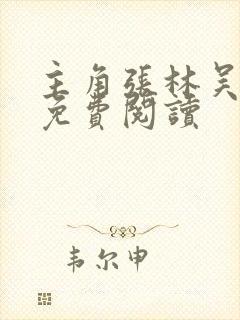 主角張林吴
免費閱讀
韦尔申